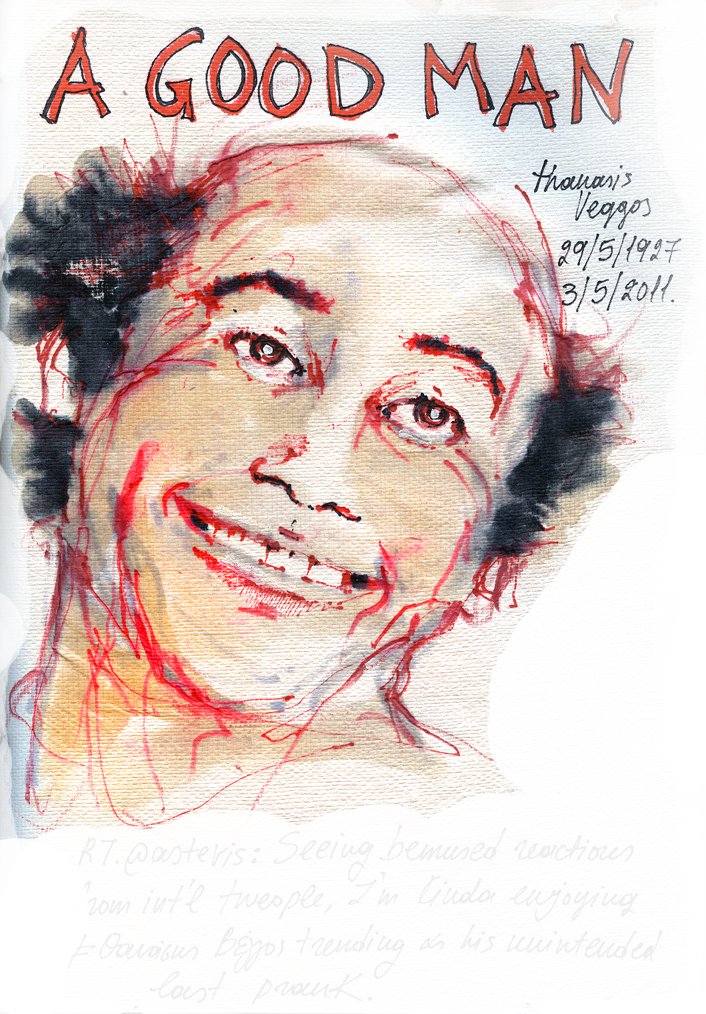 A GOOD MAN
thanasis
Veggos
29/5/1927
3/5/2011.
RT.@asteris: Seeing bemused reactions
from int'l tweople, I'm kinda enjoying
#Θανασης Βέγγος trending as his unintended
last prank.